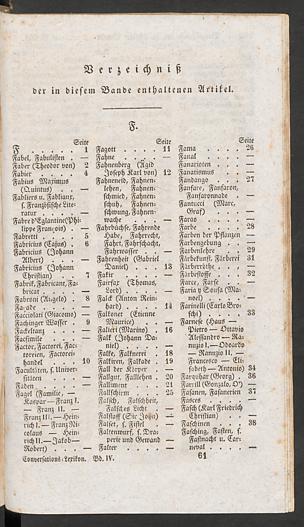 Verzeichniß
der in diesem Bande enthaltenen Artikel.
F.
Seite
F . . . . . . 1
Fabel, Fabulisten . —
Faber (Theodor von) 2
Fabier . . . . 4
Fabius Maximus
(Quintus) . . —
Fabliers u. Fabliaux,
s. Französische Lite-
ratur . . . . —
Fabre d'Eglantine (Phi-
lippe François) . —
Fabretti . . . . 5
Fabricius (Cajus) . 6
Fabricius (Johann
Albert) . . . —
Fabricius (Johann
Christian) . . 7
Fabrik, Fabricant, Fa-
bricat . . . . —
Fabroni (Angelo) . 8
Façade . . . . —
Facciolati (Giacomo) —
Fachinger Wasser . 9
Fackeltanz . . . —
Facsimile . . . —
Factor, Factorei, Fac-
toreien, Factorei-
handel . . . 10
Facultäten, s. Univer-
sitäten . . . —
Faden . . . . —
Fagel (Familie,
Kaspar — Franz I.
— Franz II. —
Franz III. — Hein-
rich I. — Franz Ni-
colaus — Hein-
rich II. — Jakob —
Robert) . . . —
Conversations-Lexikon. Bd. IV.
Seite
Fagott . . . . 11
Fahne . . . . —
Fahnenberg (Ägid
Joseph Karl von) 12
Fahneneid, Fahnen-
lehen, Fahnen-
schmied, Fahnen-
schuh, Fahnen-
schwung, Fahnen-
wache . . . . —
Fahrbüchse, Fahrende
Habe, Fahrrecht,
Fahrt, Fahrschacht,
Fahrwasser . . —
Fahrenheit (Gabriel
Daniel) . . . 13
Fakir . . . . —
Fairfax (Thomas,
Lord) . . . . —
Falck (Anton Rein-
hard) . . . . 14
Falconet (Etienne
Maurice) . . . —
Falieri (Marino) . 16
Falk (Johann Da-
niel) . . . . —
Falke, Falknerei . 18
Falkiren, Falkade . 19
Fall der Körper . —
Fallgut, Falllehen . 20
Falliment . . . 21
Fallschirm . . . 25
Falsch, Falschheit,
Falsches Licht . —
Falstaff (Sir John) —
Falset, s. Fistel . —
Faltenwurf, s. Dra-
perie und Gewand —
Falter . . . . —
Seite
Fama . . . . 26
Fanal . . . . —
Fanarioten . . . —
Fanatismus . . —
Fandango . . . 27
Fanfare, Fanfaron,
Fanfaronnade . —
Fantucci (Marc.
Graf) . . . . —
Faros . . . . —
Farbe . . . . 28
Farben der Pflanzen —
Farbengebung . . —
Farbenlehre . . 29
Färbekunst, Färberei 31
Färberröthe . . —
Färbestoffe . . . 32
Farce, Farse . . —
Faria y Sousa (Ma-
noel) . . . . —
Farinelli (Carlo Bro-
schi) . . . . 33
Farnese (Haus —
Pietro — Ottavio
Alessandro — Ra-
nuzio I. — Odoardo
— Ranuzio II. —
Francesco — Eli-
sabeth — Antonio) 34
Farquhar (Georg) . 36
Farrill (Gonzalo, O') —
Fasanen, Fasanerien 37
Fasces . . . . —
Fasch (Karl Friedrich
Christian) . . —
Faschinen . . . 38
Fasching, Fasten, s.
Fastnacht u. Car-
neval . . . . —
61